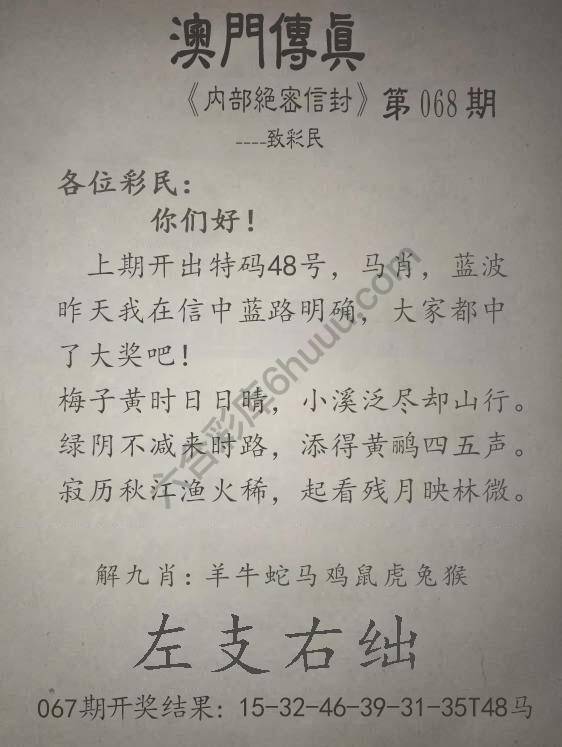 澳門傳眞
《内部絕密信封》第068期
----致彩民
各位彩民：
你们好！
上期开出特码48号，马肖，蓝波
昨天我在信中蓝路明确，大家都中
了大奖吧！
梅子黄时日日晴，小溪泛尽却山行。
绿阴不减来时路，添得黄鹂四五声。
寂历秋江渔火稀，起看残月映林微。
解九肖：羊牛蛇马鸡鼠虎兔猴
左支右绌
067期开奖结果：15-32-46-39-31-35T48马
六合彩库6huuu.com